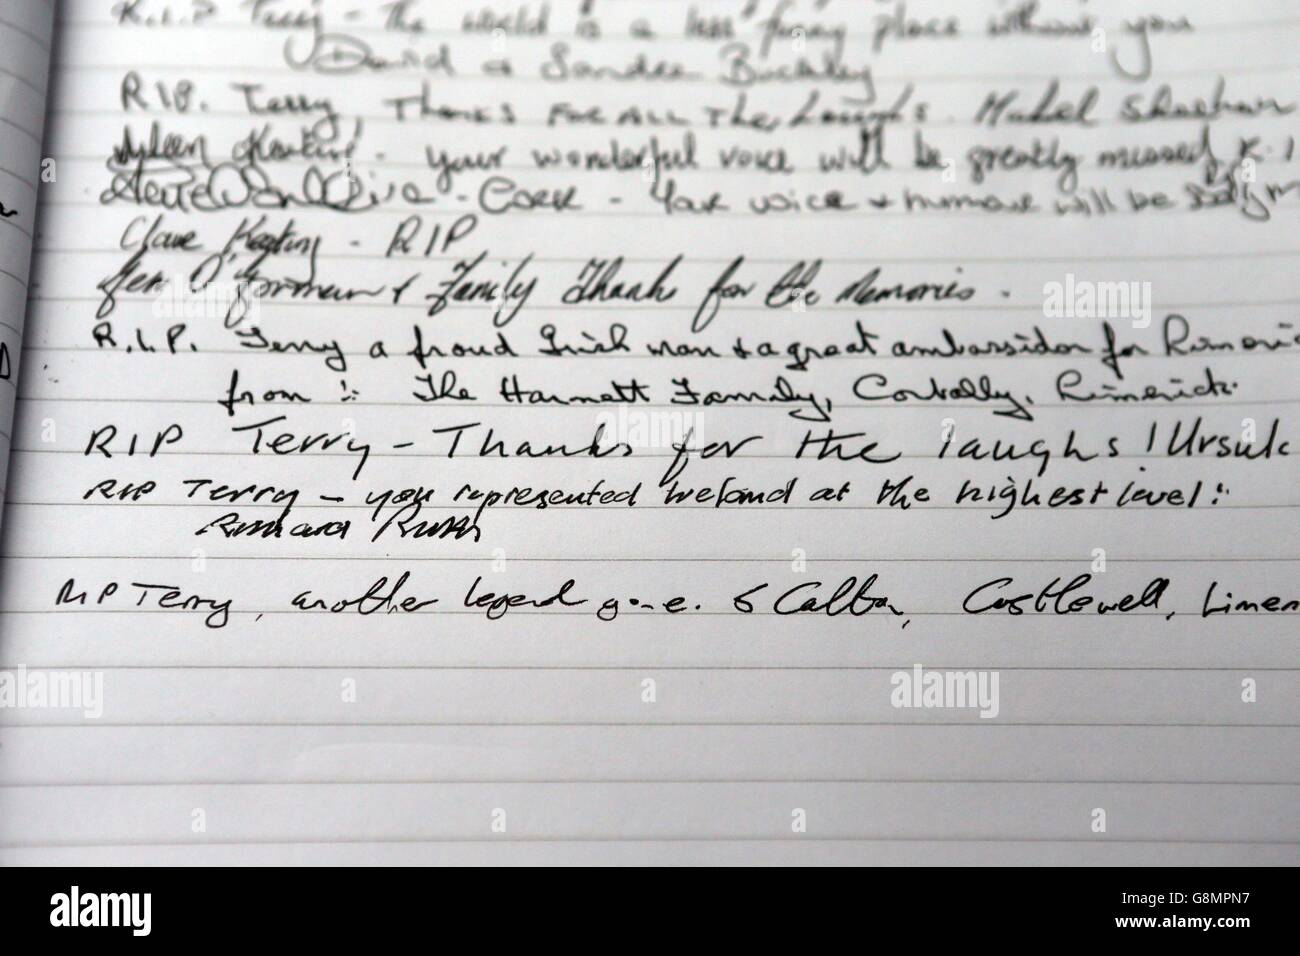 R.I.P Terry - the world is a less funny place without you
David & Sandra Buckley
RIP. Terry, Thanks FOR ALL The Laughs.
Keating - your wonderful voice will be greatly missed R.I
- CORK - Your voice & humour will be
Clare Keating - RIP
& Family Thanks for the Memories.
R.I.P. Terry a proud Irish man & a great ambassador for Limeric
from :- The Harnett Family, Corbally, Limerick.
RIP Terry - Thanks for the laughs! Ursul
RIP Terry - you represented Ireland at the highest level:
RIP Terry, another legend gone. Calton, Castlewell, Limer
alamy
a
alamy
G8MPN7
www.alamy.com